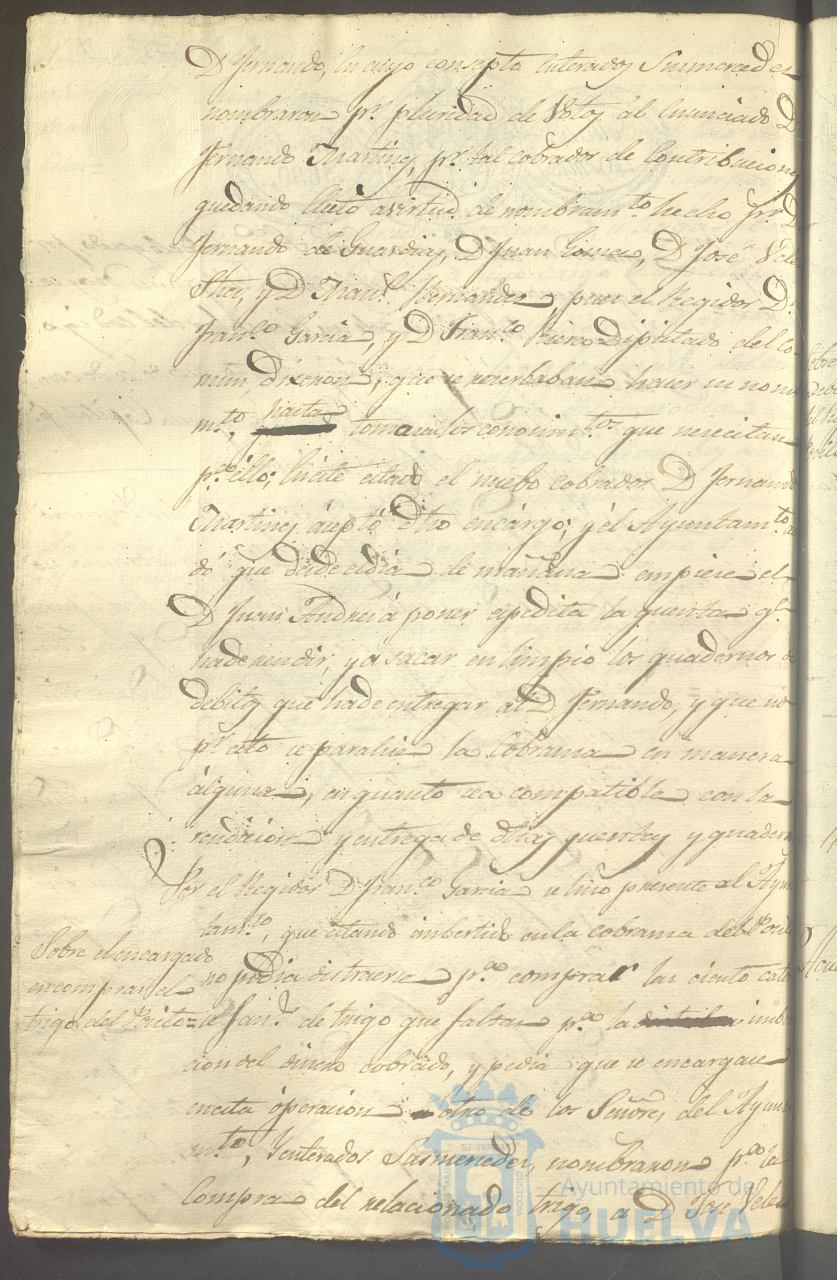 D Fernando, en cuyo consepto enterados Susmercedes
nombraron pr. pluridad de Votos al enunciado D.
Fernando Martines, pr. tal cobrador de Contribuciones
quedando electo a virtud de nombramto. hecho pr. D
Fernando de Guardia, D Juan Gomes, D José Vele
y D Manl. Fernandes pues el Regidor D.
Franco. Garcia, y D Franco. Diputado del Co-
mun, dixeron, que se reserbaban hacer su nom
mto, hasta tomar los conosimtos. que nesecitan
pa. ello; en este estado el nuebo cobrador D Fernando
Martines áseptó dho encargo; y el Ayuntamto. a
dó que desde el dia de mañana empiese el
D Juan Andres á poner espedita la quenta q.
ha de rendir, y a sacar en limpio los quadernos de
debitos que ha de entregar al D Fernando, y que no
pr. esto se paralise la Cobransa en manera
alguna, en quanto sea compatible con la
rendision y entrega de dhas quentas y quadern
Por el Regidor D Franco. Garcia se hiso presente al Ayun
tamto, que estando imbertido en la cobransa del Posito
no podia distraerse pa. comprar las ciento cato
Sobre el encargado
en comprar el
trigo del Posito =
se fans. de trigo que faltan pa. la imber
cion del dinero cobrado, y pedia que se encargase
en esta óperacion otro de los Señores del Ayunta
mto, Y enterados Susmercedes, nombraron pa. la
Compra del relacionado trigo, a D José Vele
Ayuntamiento de
HUELVA